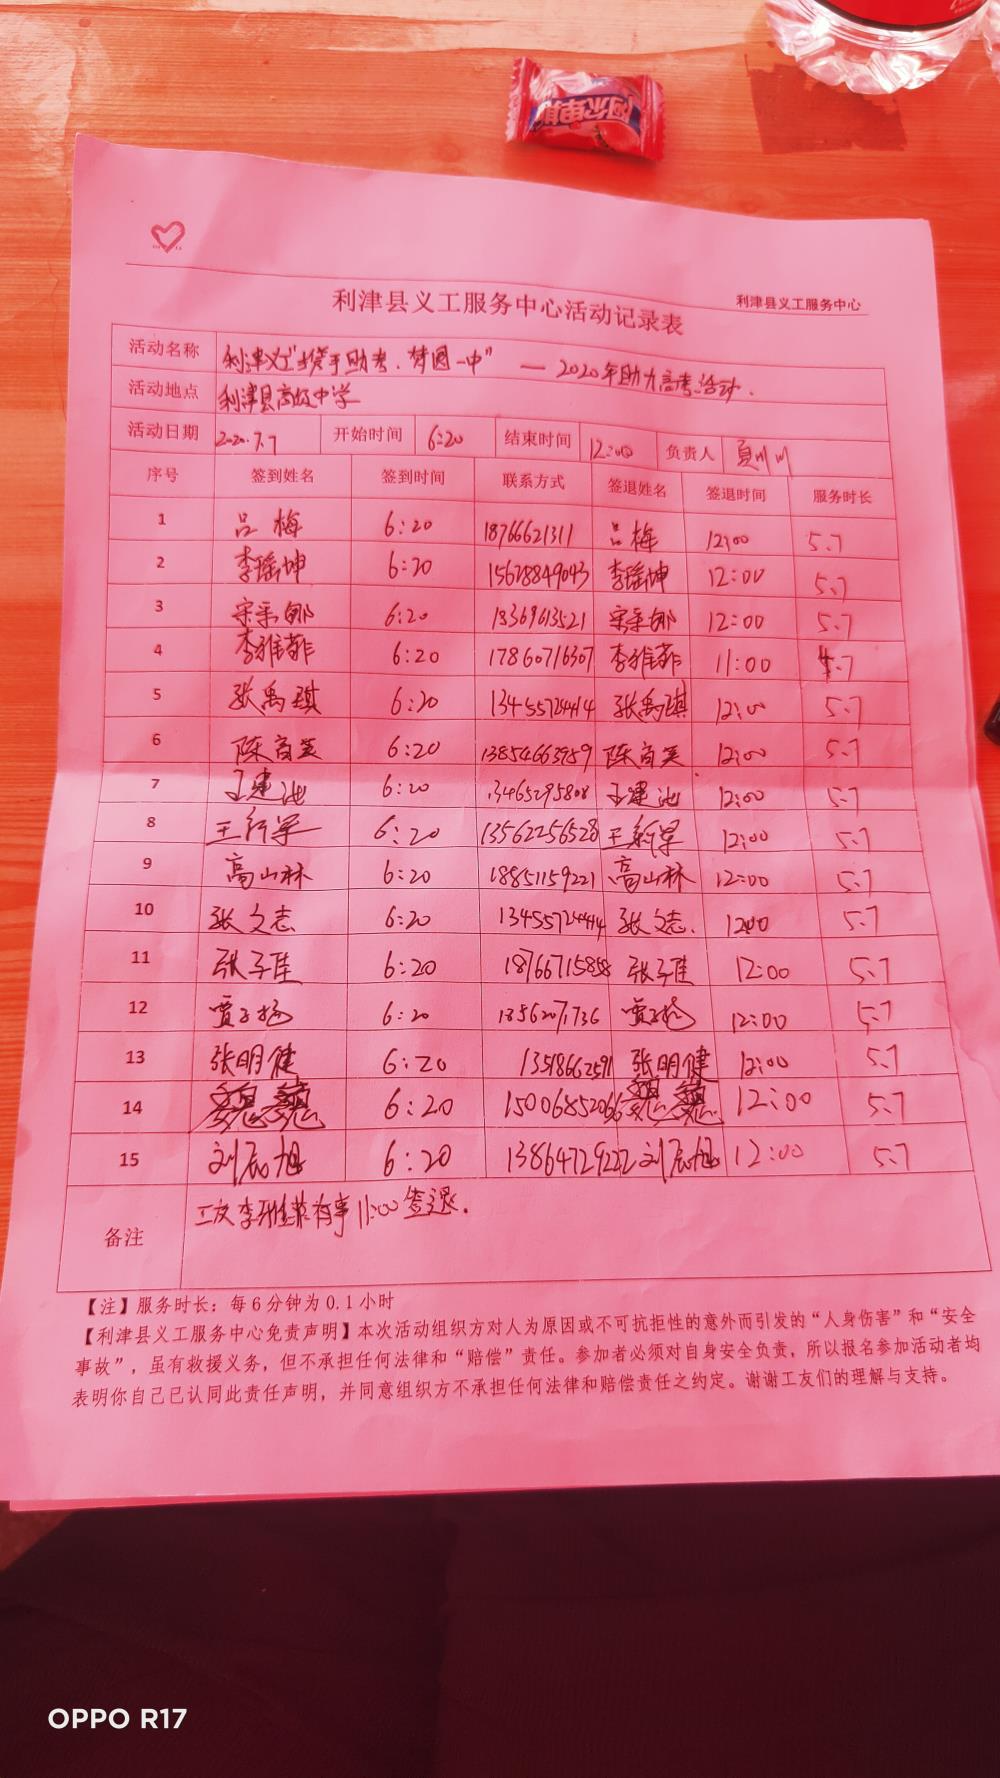 阿尔卑斯
利津县义工服务中心
利津县义工服务中心活动记录表
活动名称 利津义工"携手助考.梦圆一中" — 2020年助力高考活动.
活动地点 利津县高级中学
活动日期 2020.7.7 开始时间 6:20 结束时间 12:00 负责人 夏川川
序号 签到姓名 签到时间 联系方式 签退姓名 签退时间 服务时长
1 吕梅 6:20 18766621311 吕梅 12:00 5.7
2 李瑶坤 6:20 15628849043 李瑶坤 12:00 5.7
3 宋采娜 6:20 18369613521 宋采娜 12:00 5.7
4 李雅菲 6:20 17860716307 李雅菲 11:00 4.7
5 张禹琪 6:20 13455724414 张禹琪 12:00 5.7
6 陈育英 6:20 13854663959 陈育英 12:00 5.7
7 王建池 6:20 13465295808 王建池 12:00 5.7
8 王新军 6:20 13562256528 王新军 12:00 5.7
9 高山林 6:20 18851159221 高山林 12:00 5.7
10 张文志 6:20 13455724414 张文志. 1200 5.7
11 张子佳 6:20 18766715858 张子佳 12:00 5.7
12 贾子扬 6:20 贾子扬 12:00 5.7
13 张明健 6:20 13518662591 张明健 12:00 5.7
14 6:20 15006852066 12:00 5.7
15 刘辰旭 6:20 13864729222 刘辰旭 12:00 5.7
备注 工友李雅菲有事11:00签退.
【注】服务时长：每6分钟为0.1小时
【利津县义工服务中心免责声明】本次活动组织方对人为原因或不可抗拒性的意外而引发的“人身伤害”和“安全
事故”，虽有救援义务，但不承担任何法律和“赔偿”责任。参加者必须对自身安全负责，所以报名参加活动者均
表明你自己已认同此责任声明，并同意组织方不承担任何法律和赔偿责任之约定。谢谢工友们的理解与支持。
OPPO R17